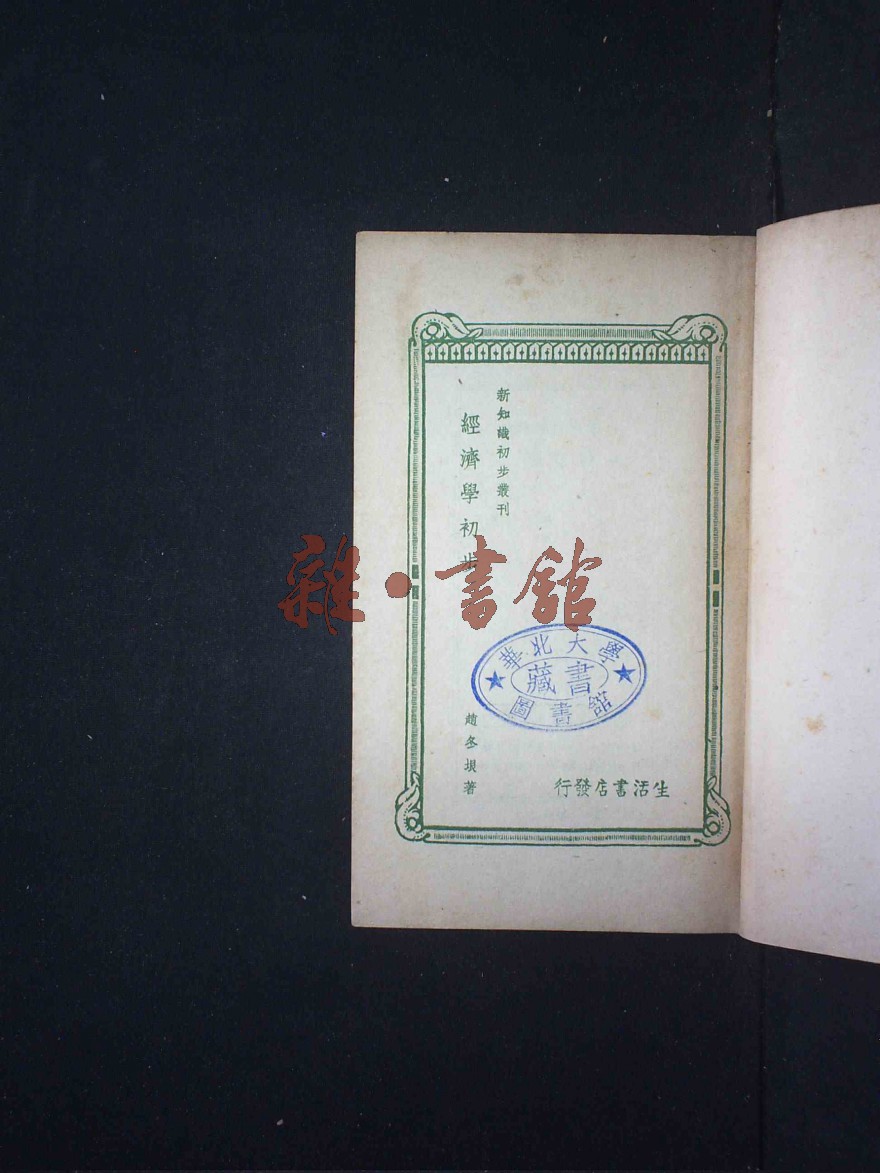 新知識初步叢刊
經濟學初步
趙冬垻著
生活書店發行
華北大學
藏書
圖書館
雜·書館